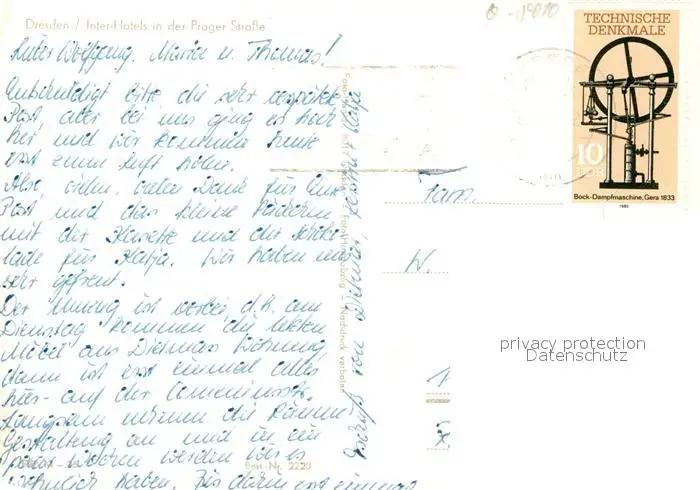 Dresden / Inter-Hotels in der Prager Straße
Lieber Wolfgang, Maria u. Thomas!
Entschuldigt bitte die sehr verspätete
Post, aber bei uns ging es hoch
her, und wir kommen heute
erst zum Luft holen.
Also, vielen, vielen Dank für Eure
Post, und das kleine Päckchen
mit der Kasette und der Schoko-
lade für Katja. Wir haben uns
sehr gefreut.
Der Umzug ist vorbei, d.h. am
Dienstag kommen die letzten
Möbel aus Dietmars Wohnung,
dann ist erst einmal alles
hier auf der Comeniusstr.
Langsam nehmen die Räume
Gestaltung an und in ein
paar Wochen werden wir es
haben. Bis dahin erst einmal
von Dietmar, Katja
Nachdruck verboten
Best.-Nr. 2220
Fam.
W.
TECHNISCHE
DENKMALE
10
DDR
Bock-Dampfmaschine, Gera 1833
1985
privacy protection
Datenschutz